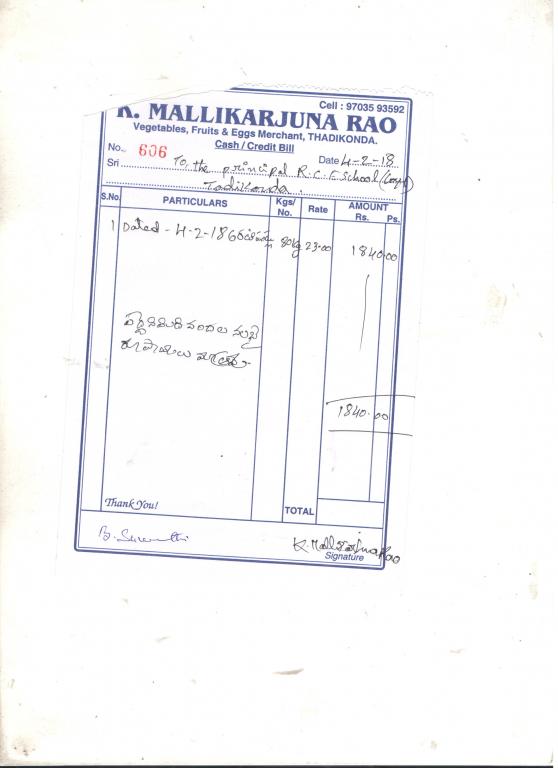 Cell : 97035 93592
K. MALLIKARJUNA RAO
Vegetables, Fruits & Eggs Merchant, THADIKONDA.
Cash / Credit Bill
No. 606 Date 4-2-18
Sri To, the principal R.C.E School (Boys)
Tadikonda.
S.No. PARTICULARS Kgs/ No. Rate AMOUNT Rs. Ps.
1 Dated - 4-2-18 80kg 23-00 1840.00
రూపాయలు మాత్రమే
1840.00
Thank You!
TOTAL
K. Mallikarjuna Rao
Signature